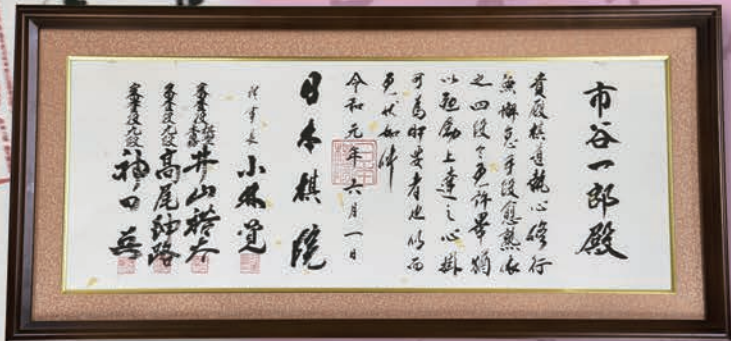 市谷一郎殿
貴殿棋道執心修行
無懈怠手段愈熟依
之四段令免許畢猶
以勉励上達之心掛
可為肝要者也仍而
免状如件
令和元年六月一日
日本棋院
理事長 小林覚
審査役 井山裕太
審査役九段 高尾紳路
審査役九段 神田英